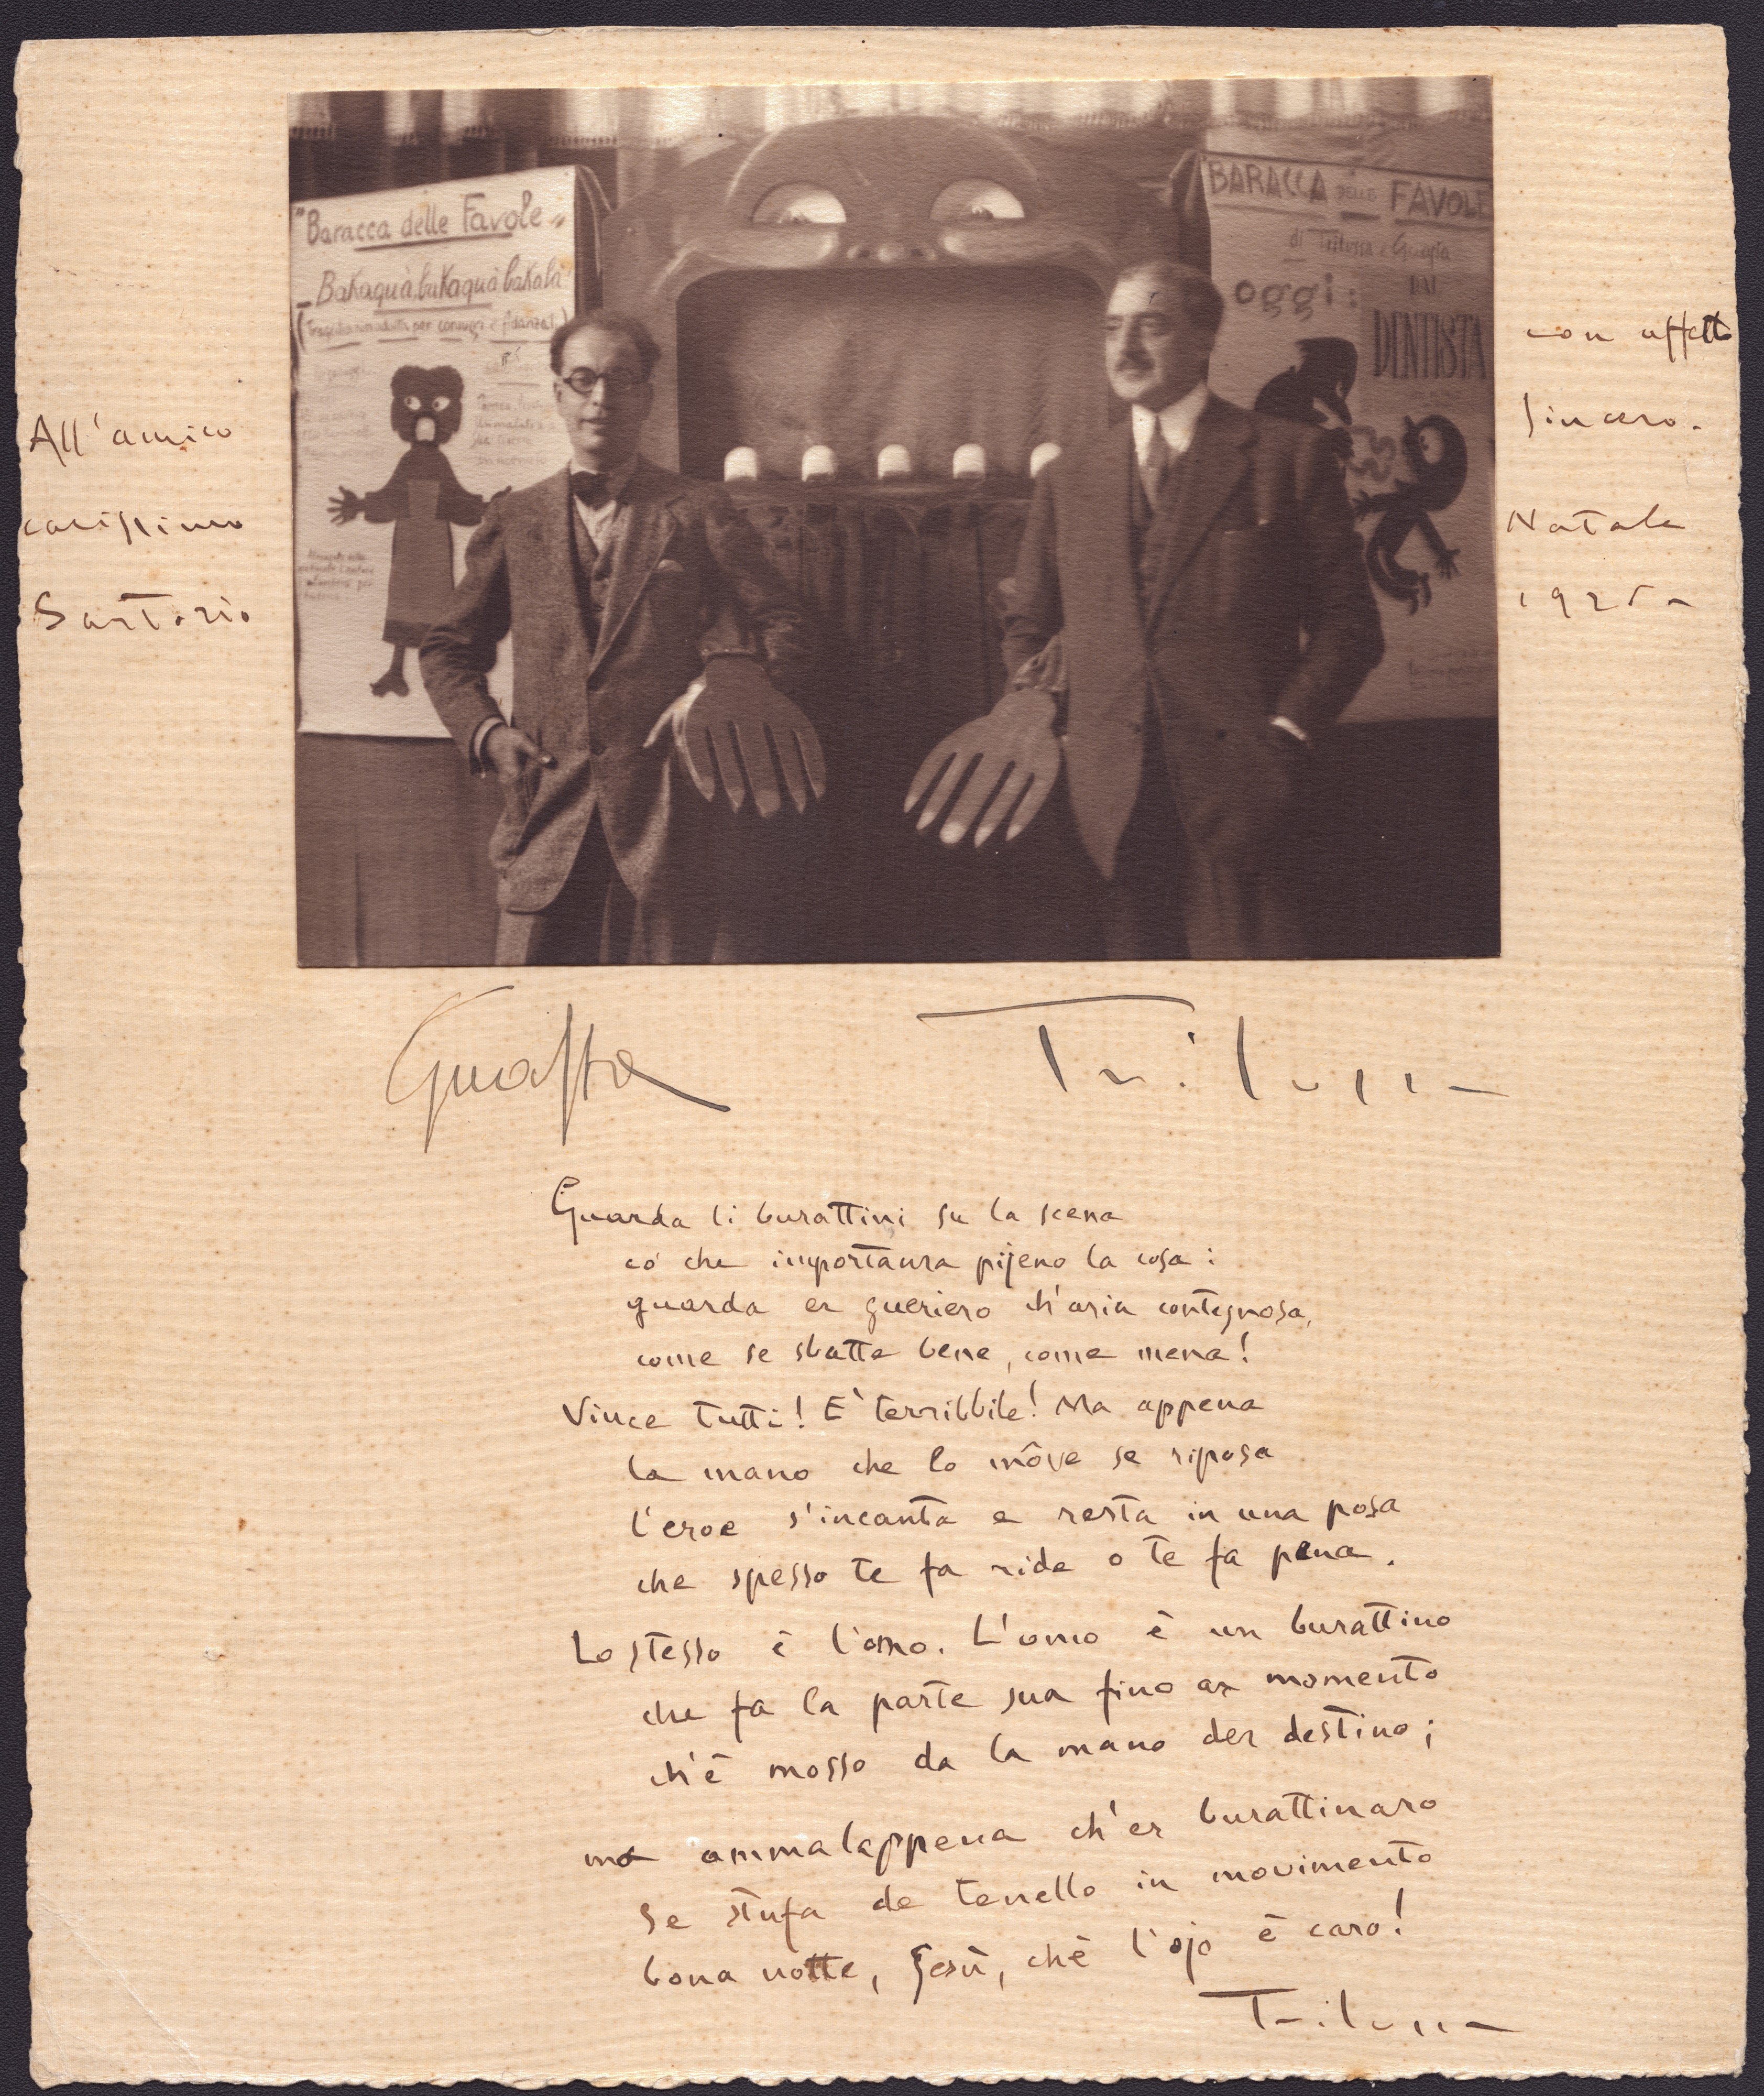 "Baracca delle Favole"
Bakaquà, bukaquà bakalà
per coniugi e fidanzati)
BARACCA DELLE FAVOLE
di Trilussa e Guasta
oggi:
DAL
DENTISTA
All'amico
carissimo
Sartorio
con affetto
sincero.
Natale
1925-
Guasta
Trilussa
Guarda li burattini su la scena
có che importanza pijeno la cosa:
guarda er gueriero ch'aria contegnosa,
come se sbatte bene, come mena!
Vince tutti! E' terribbile! Ma appena
la mano che lo môve se riposa
l'eroe s'incanta e resta in una posa
che spesso te fa ride o te fa pena.
Lo stesso è l'omo. L'omo è un burattino
che fa la parte sua fino ar momento
ch'è mosso da la mano der destino;
ma ammalappena ch'er burattinaro
se stufa de tenello in movimento
bona notte, Gesù, chè l'ojo è caro!
Trilussa